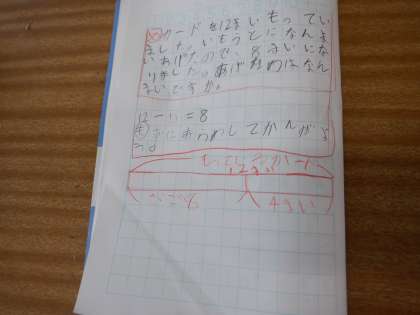 カードを12まいもってい
ました。いもうとになんま
いあげたので、8まいにな
りました。あげたのはなん
まいですか。
12-□=8
ずにあらわしてかんがえ
る。
もっているカード
12まい
4まい